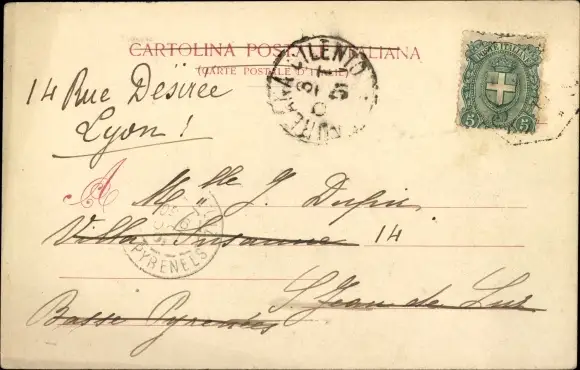 CARTOLINA POSTALE ITALIANA
(CARTE POSTALE D'ITALIE)
POSTE ITALIANE
5 5
14 Rue Désirée
Lyon!
A Mlle J. Dupin
Villa Susanne 14
PYRENEES
St Jean de Luz
Basse Pyrenées